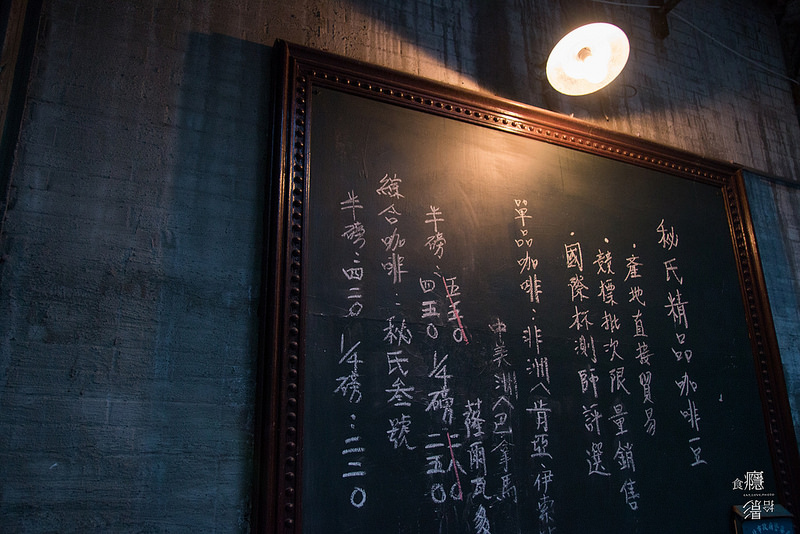 秘氏精品咖啡豆
·產地直接貿易
·競標批次限量銷售
·國際杯測師評選
單品咖啡:非洲へ肯亞、伊索
中美洲へ巴拿馬
薩爾瓦多
半磅:五五〇 四五〇 1/4磅 二八〇 二五〇
綜合咖啡:秘氏叁號
半磅:四二〇 1/4磅:二二〇
食癮
拾影